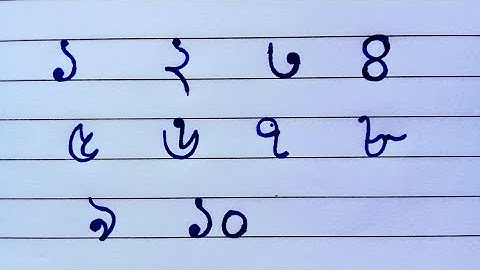 ১ ২ ৩ ৪
৫ ৬ ৭ ৮
৯ ১০